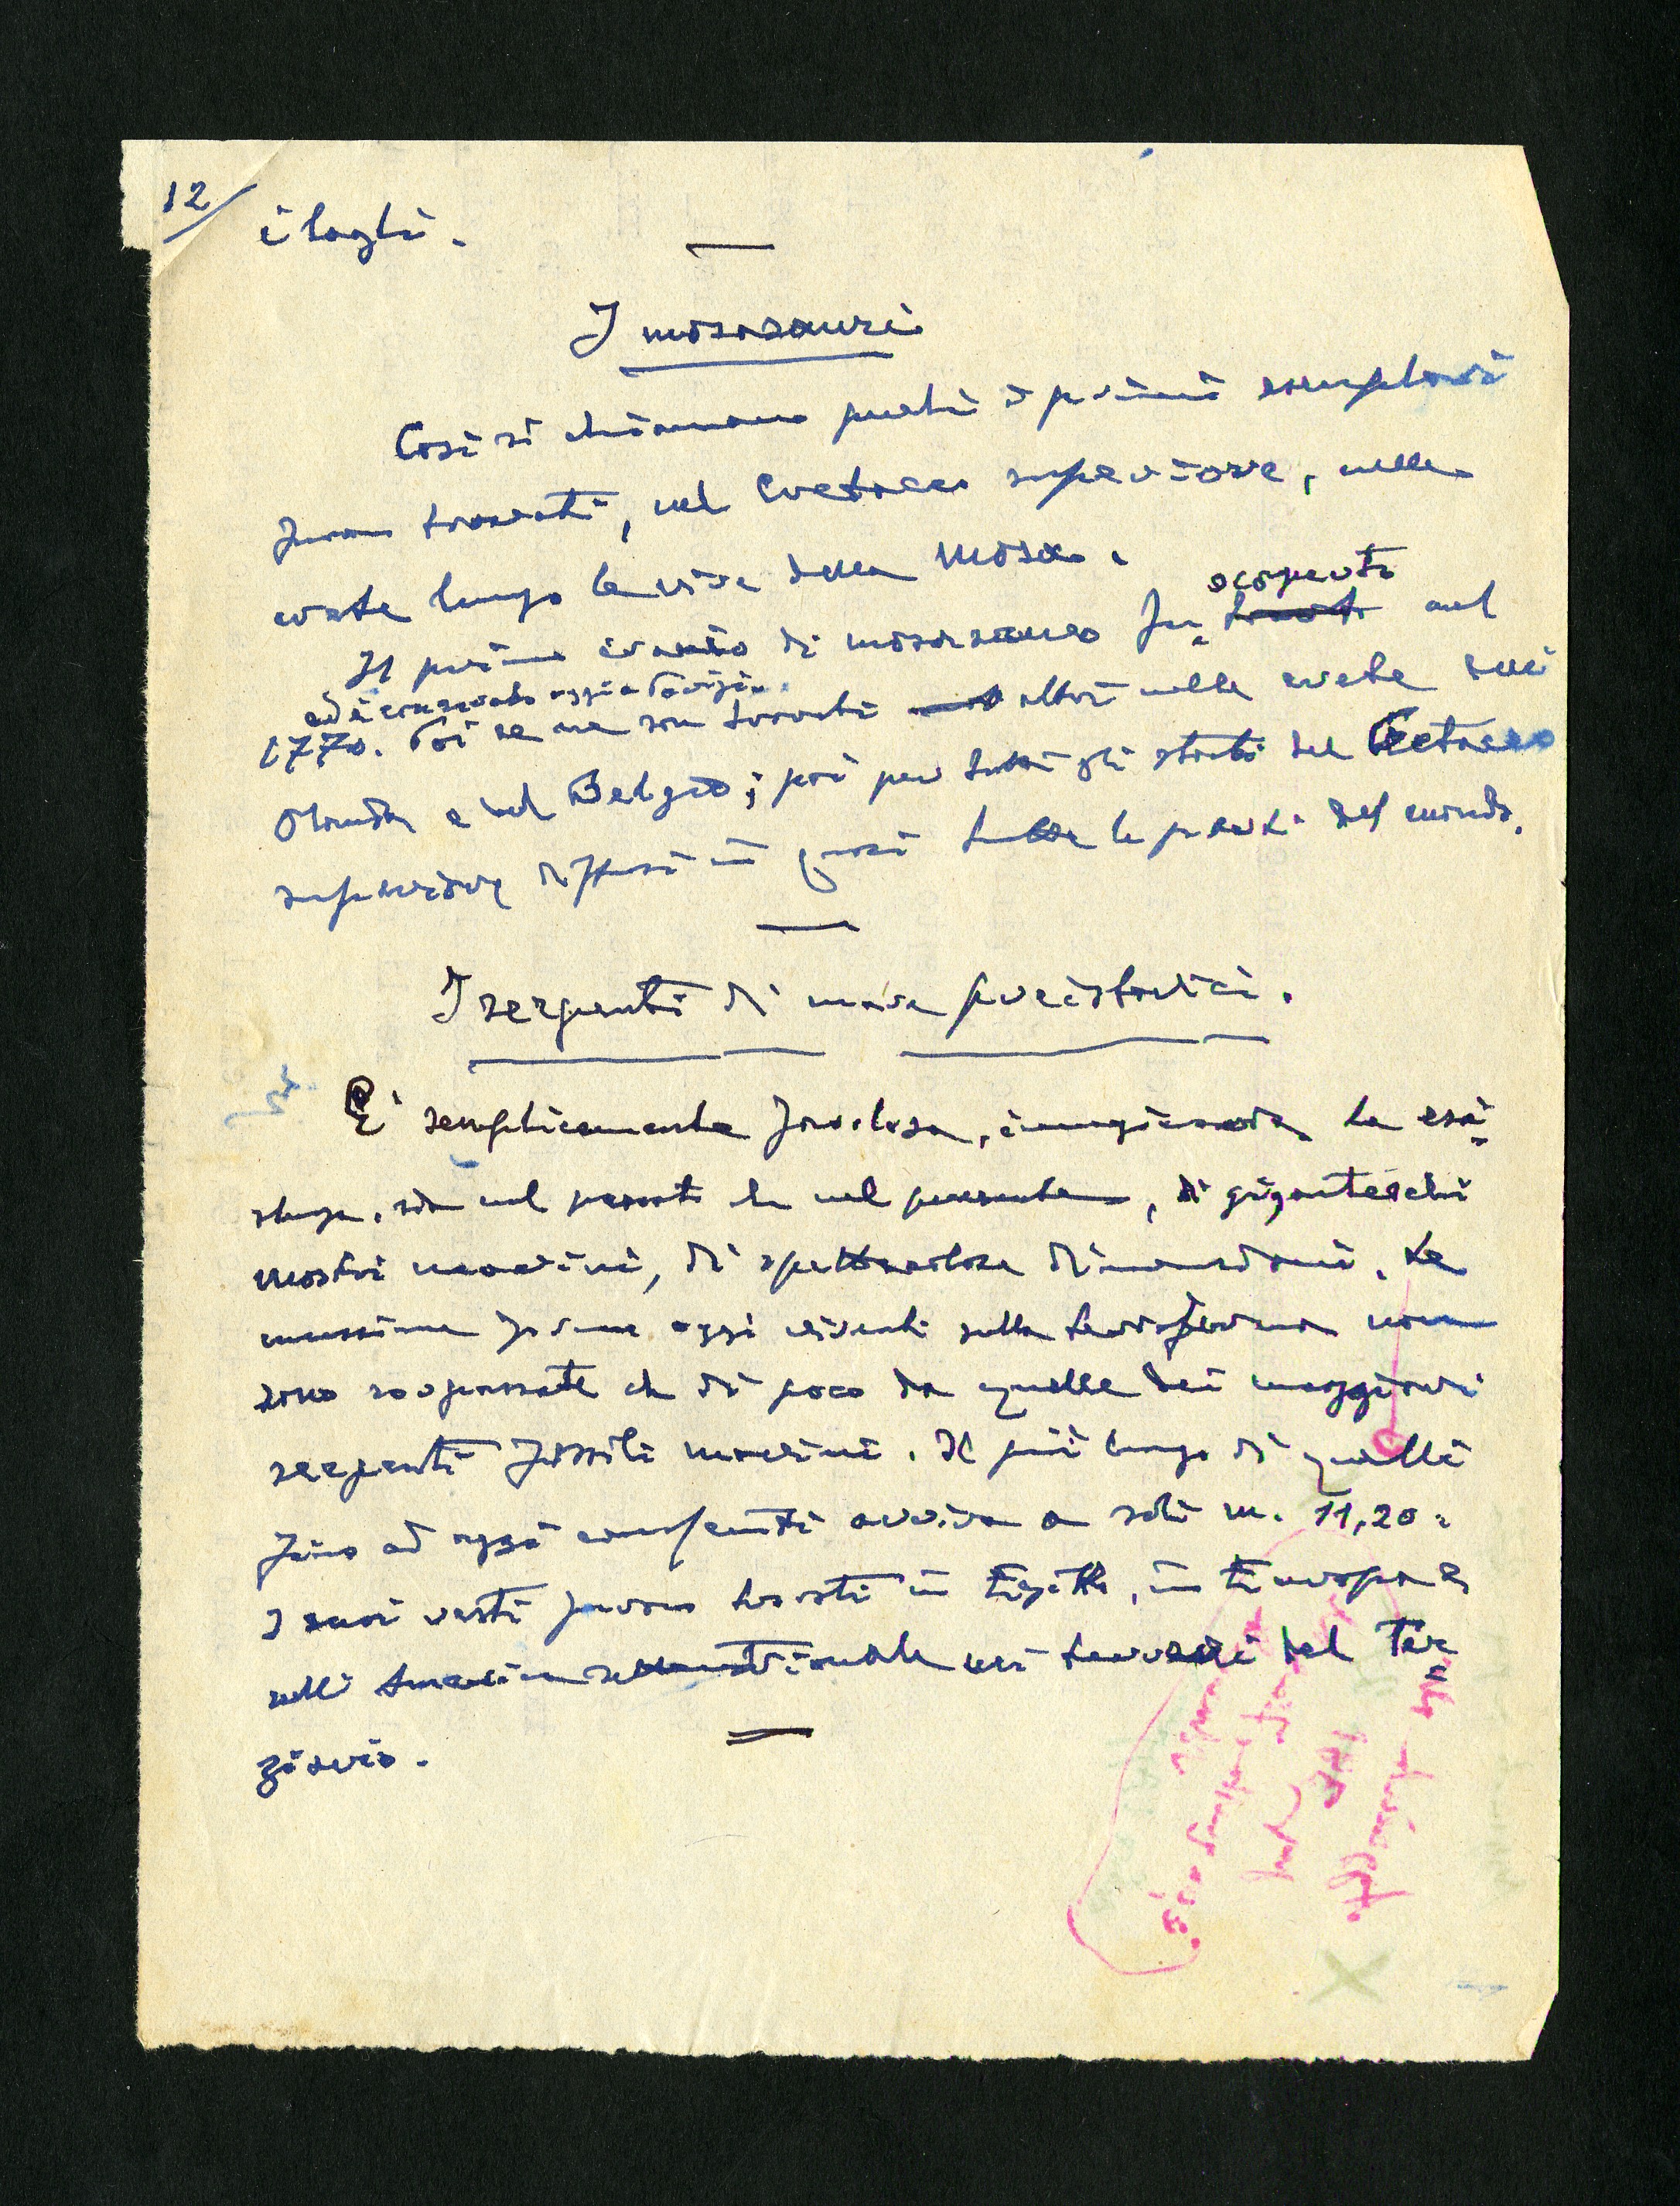 12
i laghi.
I mosasauri
Così si chiamano perché i primi esemplari
furon trovati, nel Cretaceo superiore, nelle
crete lungo le rive della Mosa.
Il primo cranio di mosasauro fu scoperto nel
ed è conservato oggi a Parigi.
1770. Poi se ne son trovati altri nelle crete dell'
Olanda e del Belgio; poi per tutti gli strati del Cretaceo
superiore diffusi in quasi tutte le parti del mondo.
I serpenti di mare preistorici.
E' semplicemente favolosa, immaginaria la esi=
stenza, sia nel passato che nel presente, di giganteschi
mostri marini, di spettacolose dimensioni. Le
massime forme oggi viventi sulla terraferma non
sono sorpassate che di poco da quelle dei maggiori
serpenti fossili marini. Il più lungo di quelli
fino ad oggi conosciuti arriva a soli m. 11,20.
I suoi resti furon trovati in Egitto, in Europa e
nell'America settentrionale nei terreni del Ter=
ziario.